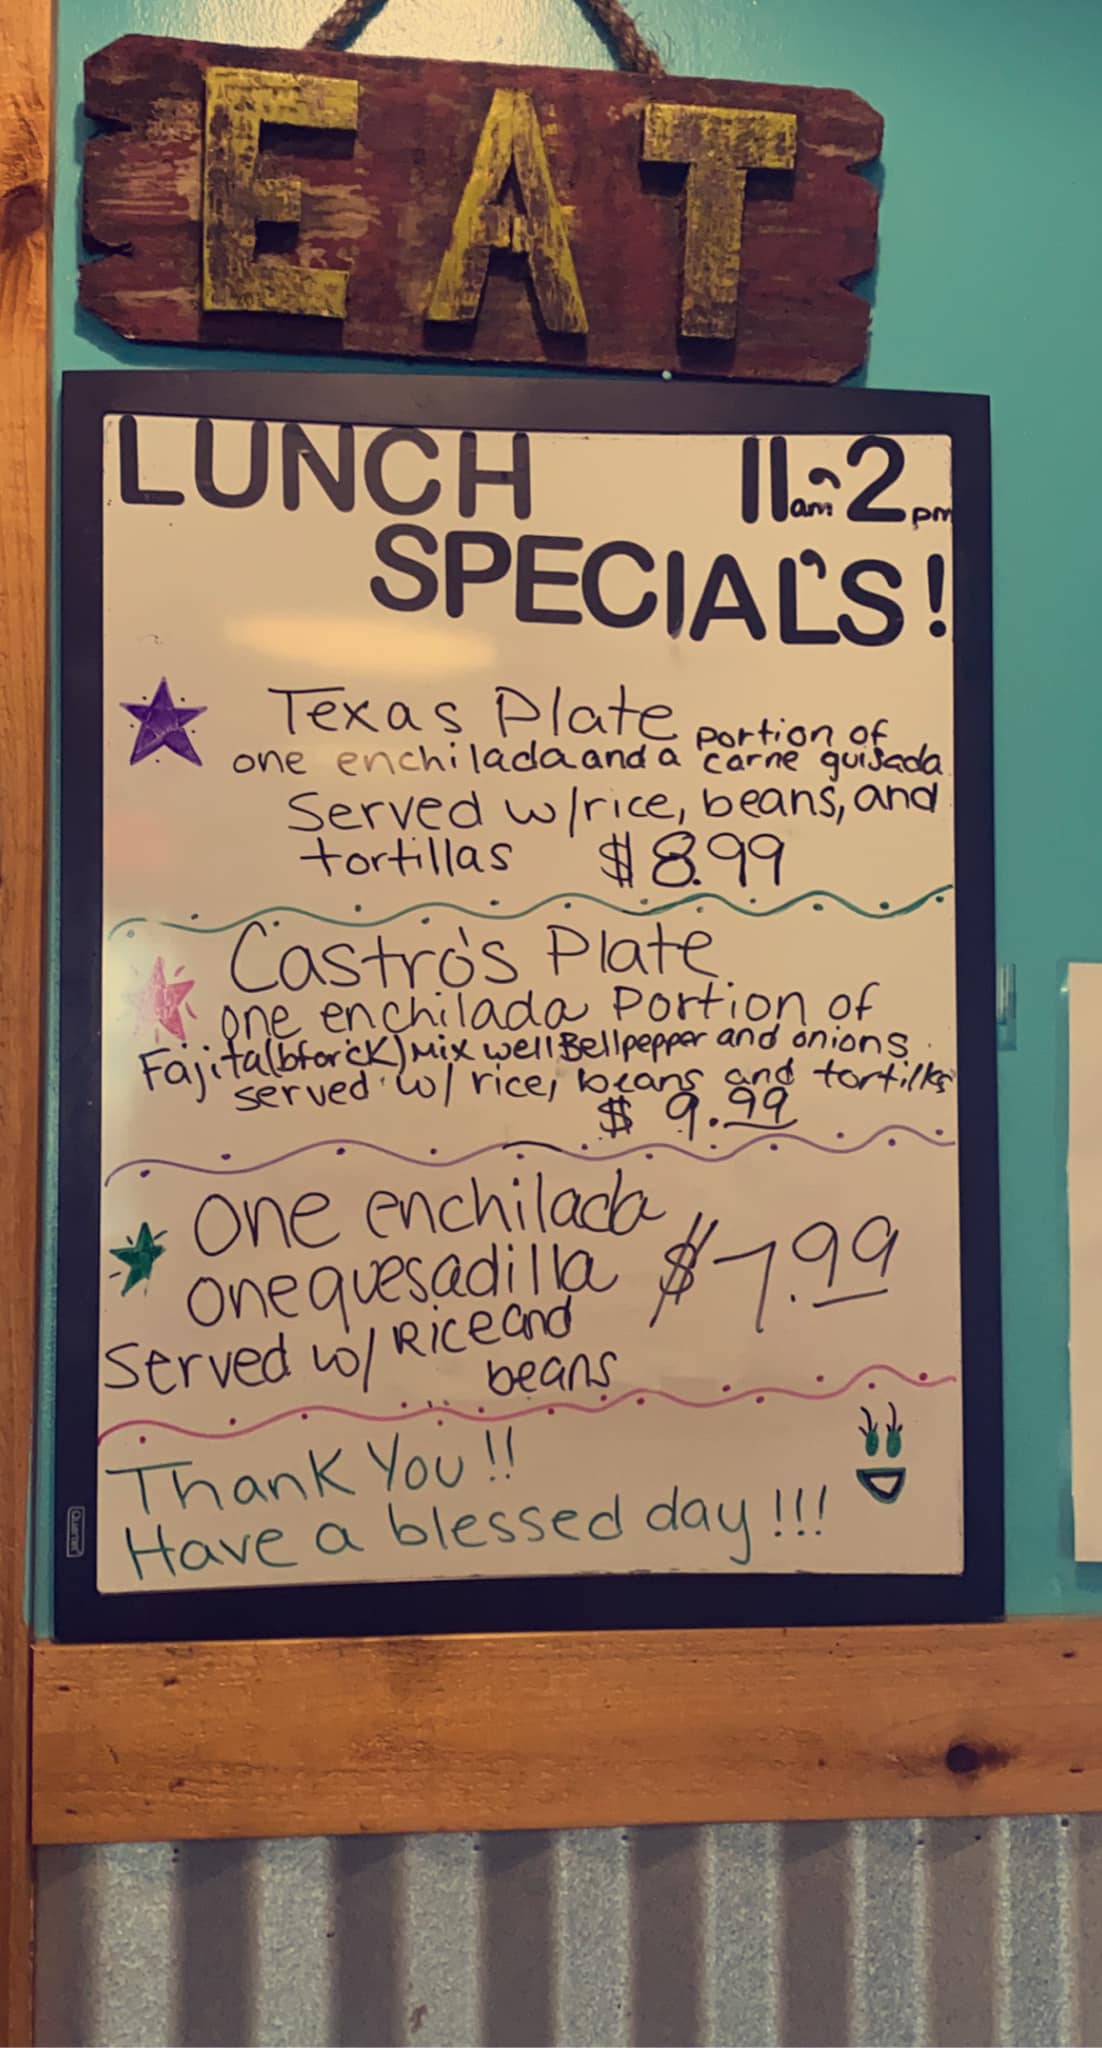 EAT
LUNCH 11am-2pm
SPECIAL'S!
Texas Plate portion of
one enchilada and a carne guisada
Served w/rice, beans, and
tortillas $8.99
Castro's Plate
one enchilada Portion of
Fajita(bforcK)Mix well Bellpepper and onions
served w/ rice, beans and tortillas
$ 9.99
One enchilada
one quesadilla $7.99
Served w/ Rice and
beans
Thank You!!
Have a blessed day!!!
Quartet